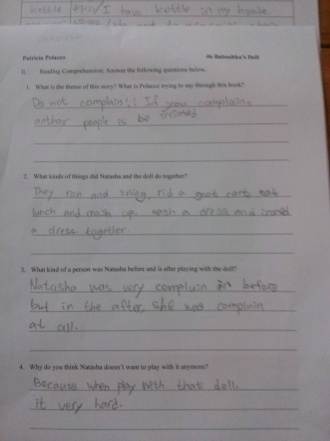 kettle I have kettle in my house
Patricia Polacco Babushka's Doll
II. Reading Comprehension: Answer the following questions below.
1. What is the theme of this story? What is Polacco trying to say through this book?
Do not complain!! If you complain,
anther people is be
2. What kinds of things did Natasha and the doll do together?
They ran and swing, rid a goat cart, eat
lunch and mash up. wash a dress and ironed
a dress together.
3. What kind of a person was Natasha before and is after playing with the doll?
Natasha was very complain in before
but in the after, she was complain
at all.
4. Why do you think Natasha doesn't want to play with it anymore?
Because when play with that doll,
it very hard.